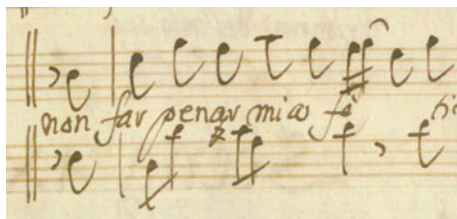 non far penar mia fé